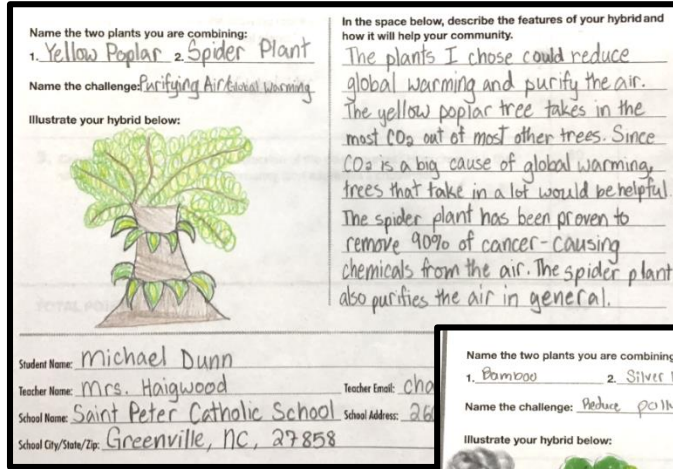 Name the two plants you are combining:
1. Yellow Poplar 2. Spider Plant
Name the challenge: Purifying Air/Global Warming
Illustrate your hybrid below:
In the space below, describe the features of your hybrid and
how it will help your community.
The plants I chose could reduce
global warming and purify the air.
The yellow poplar tree takes in the
most CO2 out of most other trees. Since
CO2 is a big cause of global warming,
trees that take in a lot would be helpful.
The spider plant has been proven to
remove 90% of cancer-causing
chemicals from the air. The spider plant
also purifies the air in general.
TOTAL
Student Name: Michael Dunn
Teacher Name: Mrs. Haigwood Teacher Email: cha
School Name: Saint Peter Catholic School School Address: 26
School City/State/Zip: Greenville, NC, 27858
Name the two plants you are combining
1. Bamboo 2. Silver
Name the challenge: Reduce
Illustrate your hybrid below: